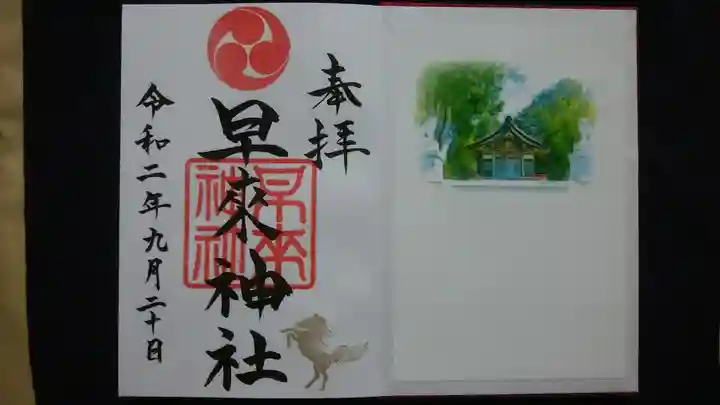 奉拝
早来神社
早来
神社
令和二年九月二十日